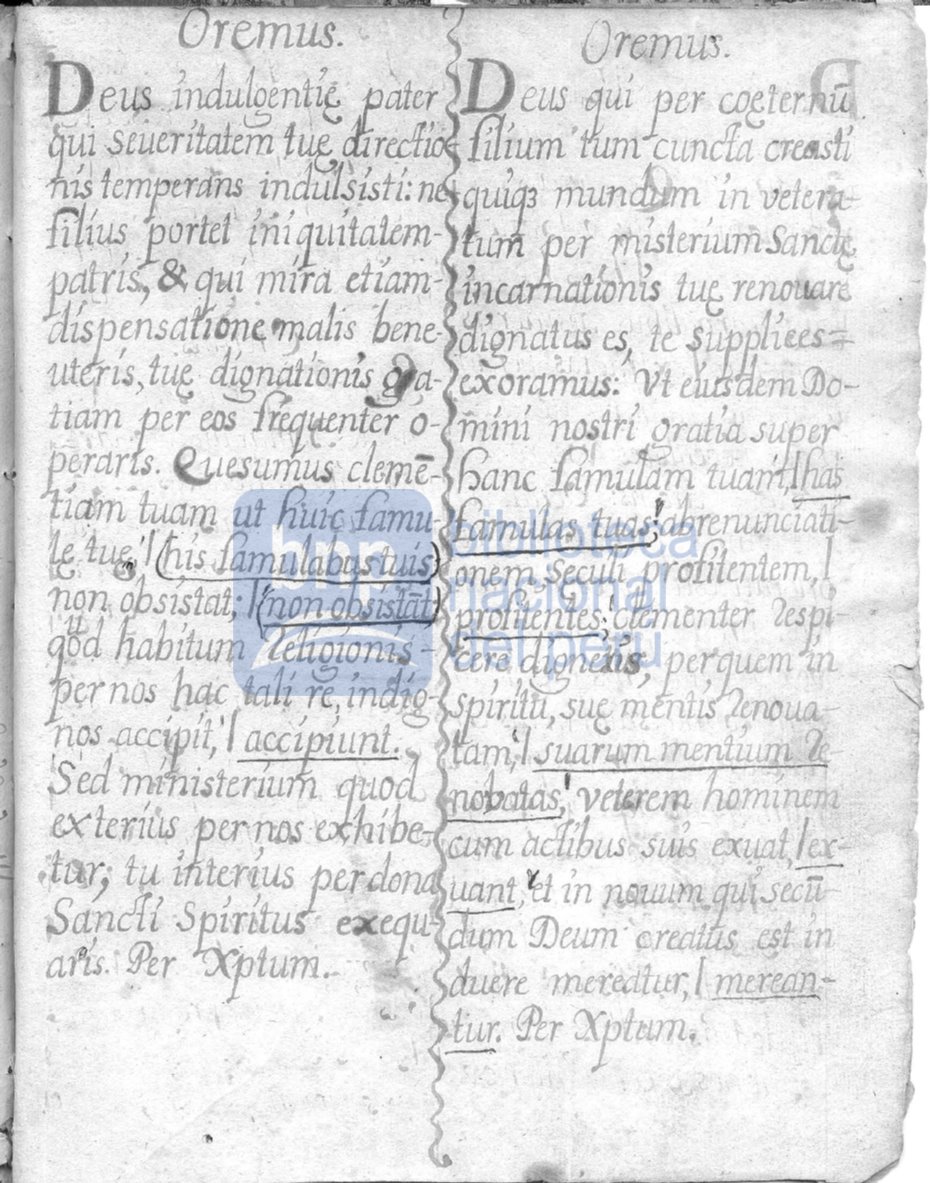 Oremus.
Deus indulgentię pater
qui seueritatem tuę directio
nis temperans indulsisti: ne
filius portet iniquitatem-
patris, & qui mira etiam-
dispensatione malis bene-
uteris, tuę dignationis gra-
tiam per eos frequenter o-
peraris. Quesumus clemē-
tiam tuam ut huic famu-
lę tuę, | (his famulabus tuis)
non obsistat; | (non obsistāt)
qđd habitum Religionis-
per nos hac tali re, indig-
nos accipit, | accipiunt.
Sed ministerium quod
exterius per nos exhibe-
tur; tu interius per dona
Sancti Spiritus exequ-
aris. Per Xptum.
Oremus.
Deus qui per coęternū
filium tum cuncta creasti
quiqȝ mundum in vetera-
tum per misterium Sanctę
incarnationis tuę renouare
dignatus es, te supplices=
exoramus: Vt eiusdem Do-
mini nostri gratia super
hanc famulam tuam, | has
famulas tuas; abrenunciati-
onem seculi profitentem, |
profitentes; Clementer Respi-
cere digneris, per quem in
spiritu, suę mentis Renoua-
tam, | suarum mentium Re-
nobatas, veterem hominem
cum actibus suis exuat, | ex-
uant, et in nouum qui secū-
dum Deum creatus est in
duere mereatur, | merean-
tur. Per Xptum.
bnp
biblioteca
nacional
del perú